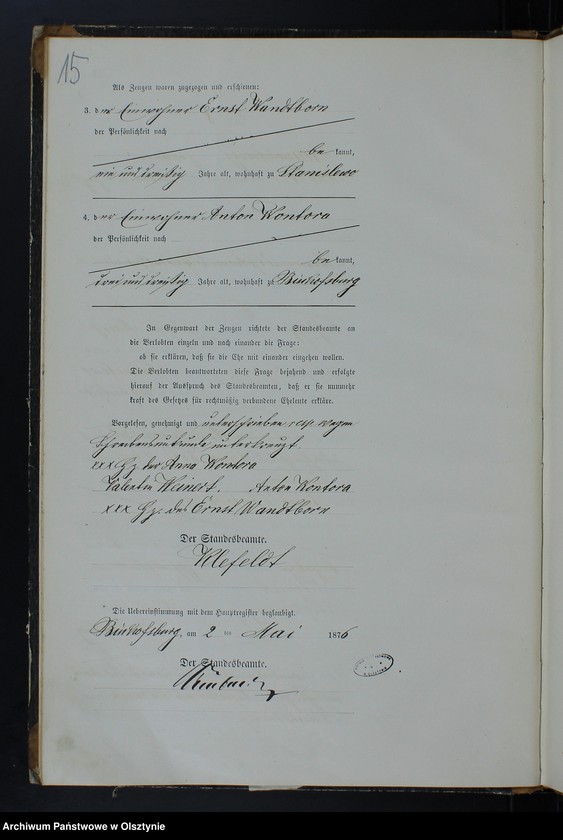 15
Als Zeugen waren zugezogen und erschienen:
3. der Einwohner Ernst Wandtborn
der Persönlichkeit nach
be kannt,
ein und dreißig Jahre alt, wohnhaft zu Stanislewo
4. der Einwohner Anton Kontora
der Persönlichkeit nach
be kannt,
drei und dreißig Jahre alt, wohnhaft zu Bischofsburg
In Gegenwart der Zeugen richtete der Standesbeamte an
die Verlobten einzeln und nach einander die Frage:
ob sie erklären, daß sie die Ehe mit einander eingehen wollen.
Die Verlobten beantworteten diese Frage bejahend und erfolgte
hierauf der Ausspruch des Standesbeamten, daß er sie nunmehr
kraft des Gesetzes für rechtmäßig verbundene Eheleute erkläre.
Vorgelesen, genehmigt und unterschrieben resp. wegen
Schreibensunkunde unterkreuzt
xxx Hz. der Anna Kontora
Valentin Weinert. Anton Kontora
xxx Hz. des Ernst Wandtborn
Der Standesbeamte.
Klefeldt
Die Uebereinstimmung mit dem Hauptregister beglaubigt.
Bischofsburg, am 2 ten Mai 1876
Der Standesbeamte.
Archiwum Państwowe w Olsztynie